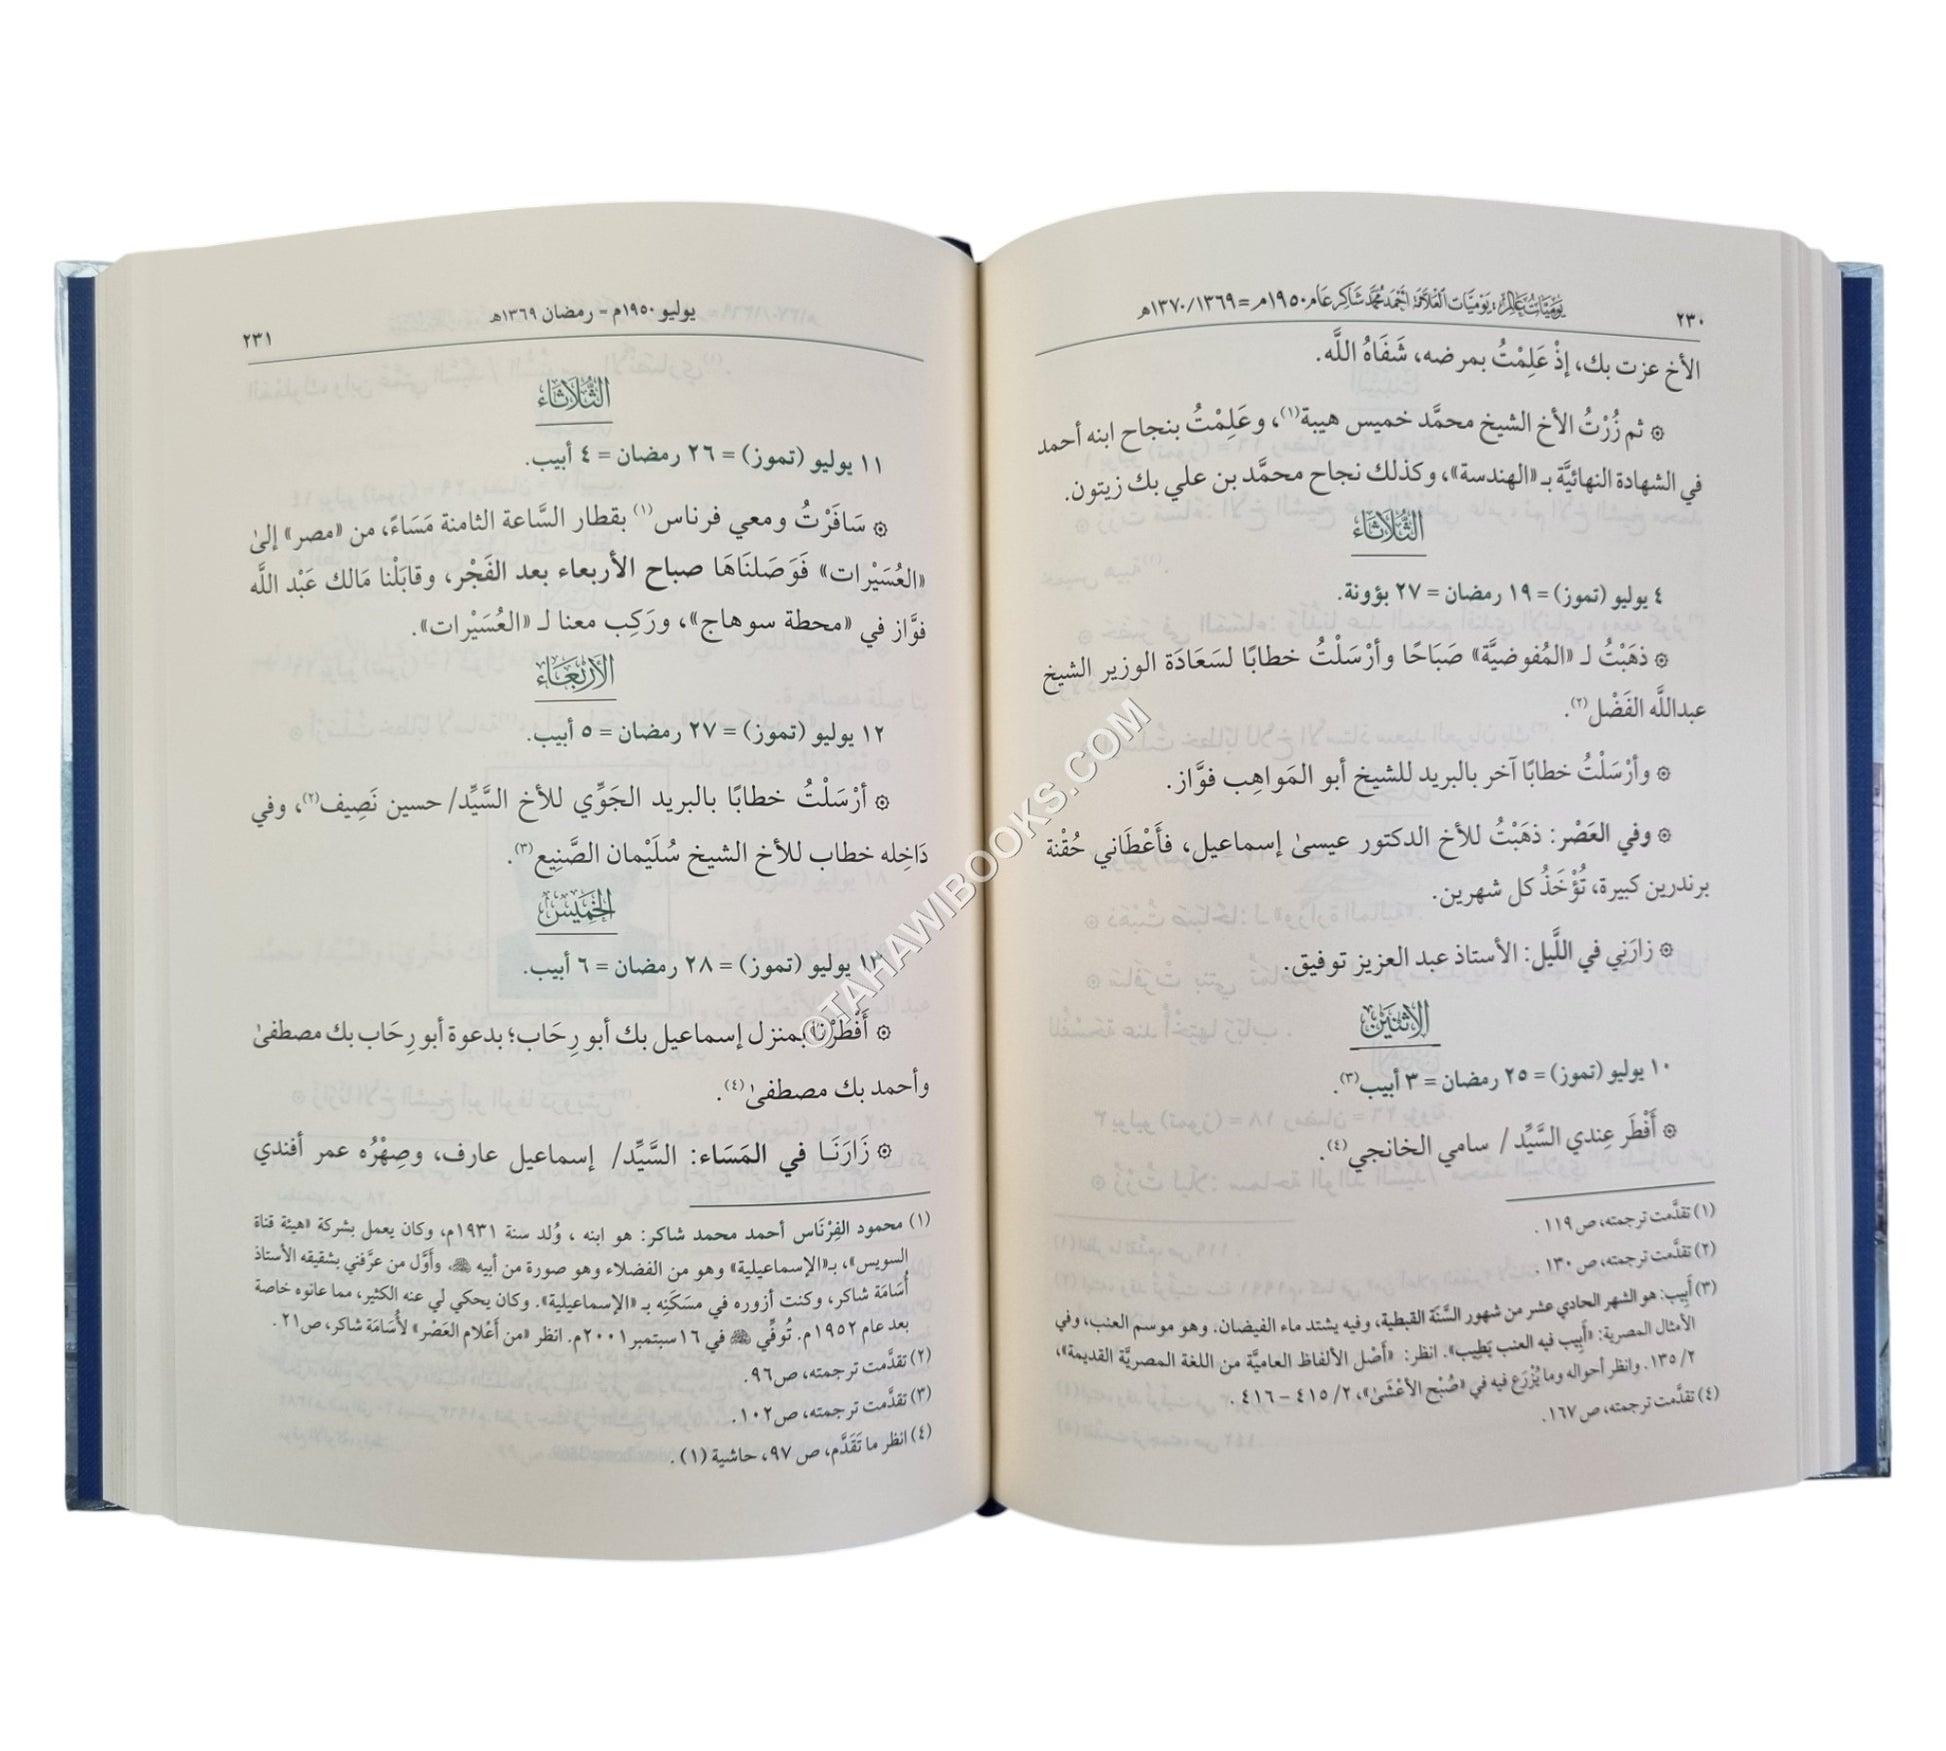 ٢٣٠
يوميات عالم؛ يوميات العلامة أحمد محمد شاكر عام ١٩٥٠م = ١٣٦٩/ ١٣٧٠هـ
الأخ عزت بك، إذْ عَلِمْتُ بمرضه، شَفَاهُ اللَّه.
۞ ثم زُرْتُ الأخ الشيخ محمَّد خميس هيبة(١)، وعَلِمْتُ بنجاح ابنه أحمد
في الشهادة النهائيَّة بـ «الهندسة»، وكذلك نجاح محمَّد بن علي بك زيتون.
الثُّلَاثَاء
٤ يوليو (تموز) = ١٩ رمضان = ٢٧ بؤونة.
۞ ذهَبْتُ لـ «المُفوضيَّة» صَبَاحًا وأرْسَلْتُ خطابًا لسَعَادَة الوزير الشيخ
عبداللَّه الفَضْل(٢).
۞ وأرْسَلْتُ خطابًا آخر بالبريد للشيخ أبو المَواهِب فوَّاز.
۞ وفي العَصْر: ذهَبْتُ للأخ الدكتور عيسىٰ إسماعيل، فأَعْطَاني حُقْنة
برندرين كبيرة، تُؤْخَذُ كل شهرين.
۞ زارَنِي في اللَّيل: الأستاذ عبد العزيز توفيق.
الإثنين
١٠ يوليو (تموز) = ٢٥ رمضان = ٣ أبيب(٣).
۞ أَفْطَر عِندي السَّيِّد/ سامي الخانجي(٤).
(١) تقدَّمت ترجمته، ص ١١٩.
(٢) تقدَّمت ترجمته، ص ١٣٠.
(٣) أَبِيب: هو الشهر الحادي عشر من شهور السَّنَة القبطية، وفيه يشتد ماء الفيضان. وهو موسم العنب، وفي
الأمثال المصرية: «أَبِيب فيه العنب يَطِيب». انظر: «أَصْل الألفاظ العاميَّة من اللغة المصريَّة القديمة»،
٢/ ١٣٥. وانظر أحواله وما يُزْرَع فيه في «صُبْح الأعْشَىٰ»، ٢/ ٤١٥ - ٤١٦.
(٤) تقدَّمت ترجمته، ص ١٦٧.
يوليو ١٩٥٠م - رمضان ١٣٦٩هـ
٢٣١
الثُّلَاثَاء
١١ يوليو (تموز) = ٢٦ رمضان = ٤ أبيب.
۞ سَافَرْتُ ومعي فرناس(١) بقطار السَّاعة الثامنة مَسَاءً، من «مصر» إلىٰ
«العُسَيْرات» فَوَصَلنَاهَا صباح الأربعاء بعد الفَجْر، وقابَلْنا مَالك عَبْد اللَّه
فوَّاز في «محطة سوهاج»، ورَكِب معنا لـ «العُسَيْرات».
الأَرْبِعَاء
١٢ يوليو (تموز) = ٢٧ رمضان = ٥ أبيب.
۞ أرْسَلْتُ خطابًا بالبريد الجَوِّي للأخ السَّيِّد/ حسين نَصِيف(٢)، وفي
دَاخِله خطاب للأخ الشيخ سُلَيْمان الصَّنِيع(٣).
الخَمِيس
١٣ يوليو (تموز) = ٢٨ رمضان = ٦ أبيب.
۞ أَفْطَرْنَا بمنزل إسماعيل بك أبو رِحَاب؛ بدعوة أبو رِحَاب بك مصطفىٰ
وأحمد بك مصطفىٰ(٤).
۞ زَارَنَا في المَسَاء: السَّيِّد/ إسماعيل عارف، وصِهْرُه عمر أفندي
(١) محمود الفِرْنَاس أحمد محمد شاكر: هو ابنه، وُلد سنة ١٩٣١م، وكان يعمل بشركة «هيئة قناة
السويس»، بـ«الإسماعيلية» وهو من الفضلاء وهو صورة من أبيه ﷀ، وأوَّل من عرَّفني بشقيقه الأستاذ
أُسَامَة شاكر، وكنت أزوره في مسَكَنِه بـ «الإسماعيلية». وكان يحكي لي عنه الكثير، مما عانوه خاصة
بعد عام ١٩٥٢م. تُوفِّي ﷀ في ١٦سبتمبر٢٠٠١م. انظر «من أَعْلام العَصْر» لأُسَامَة شاكر، ص٢١.
(٢) تقدَّمت ترجمته، ص٩٦.
(٣) تقدَّمت ترجمته، ص١٠٢.
(٤) انظر ما تَقَدَّم، ص ٩٧، حاشية (١).
©TAHAWIBOOKS.COM